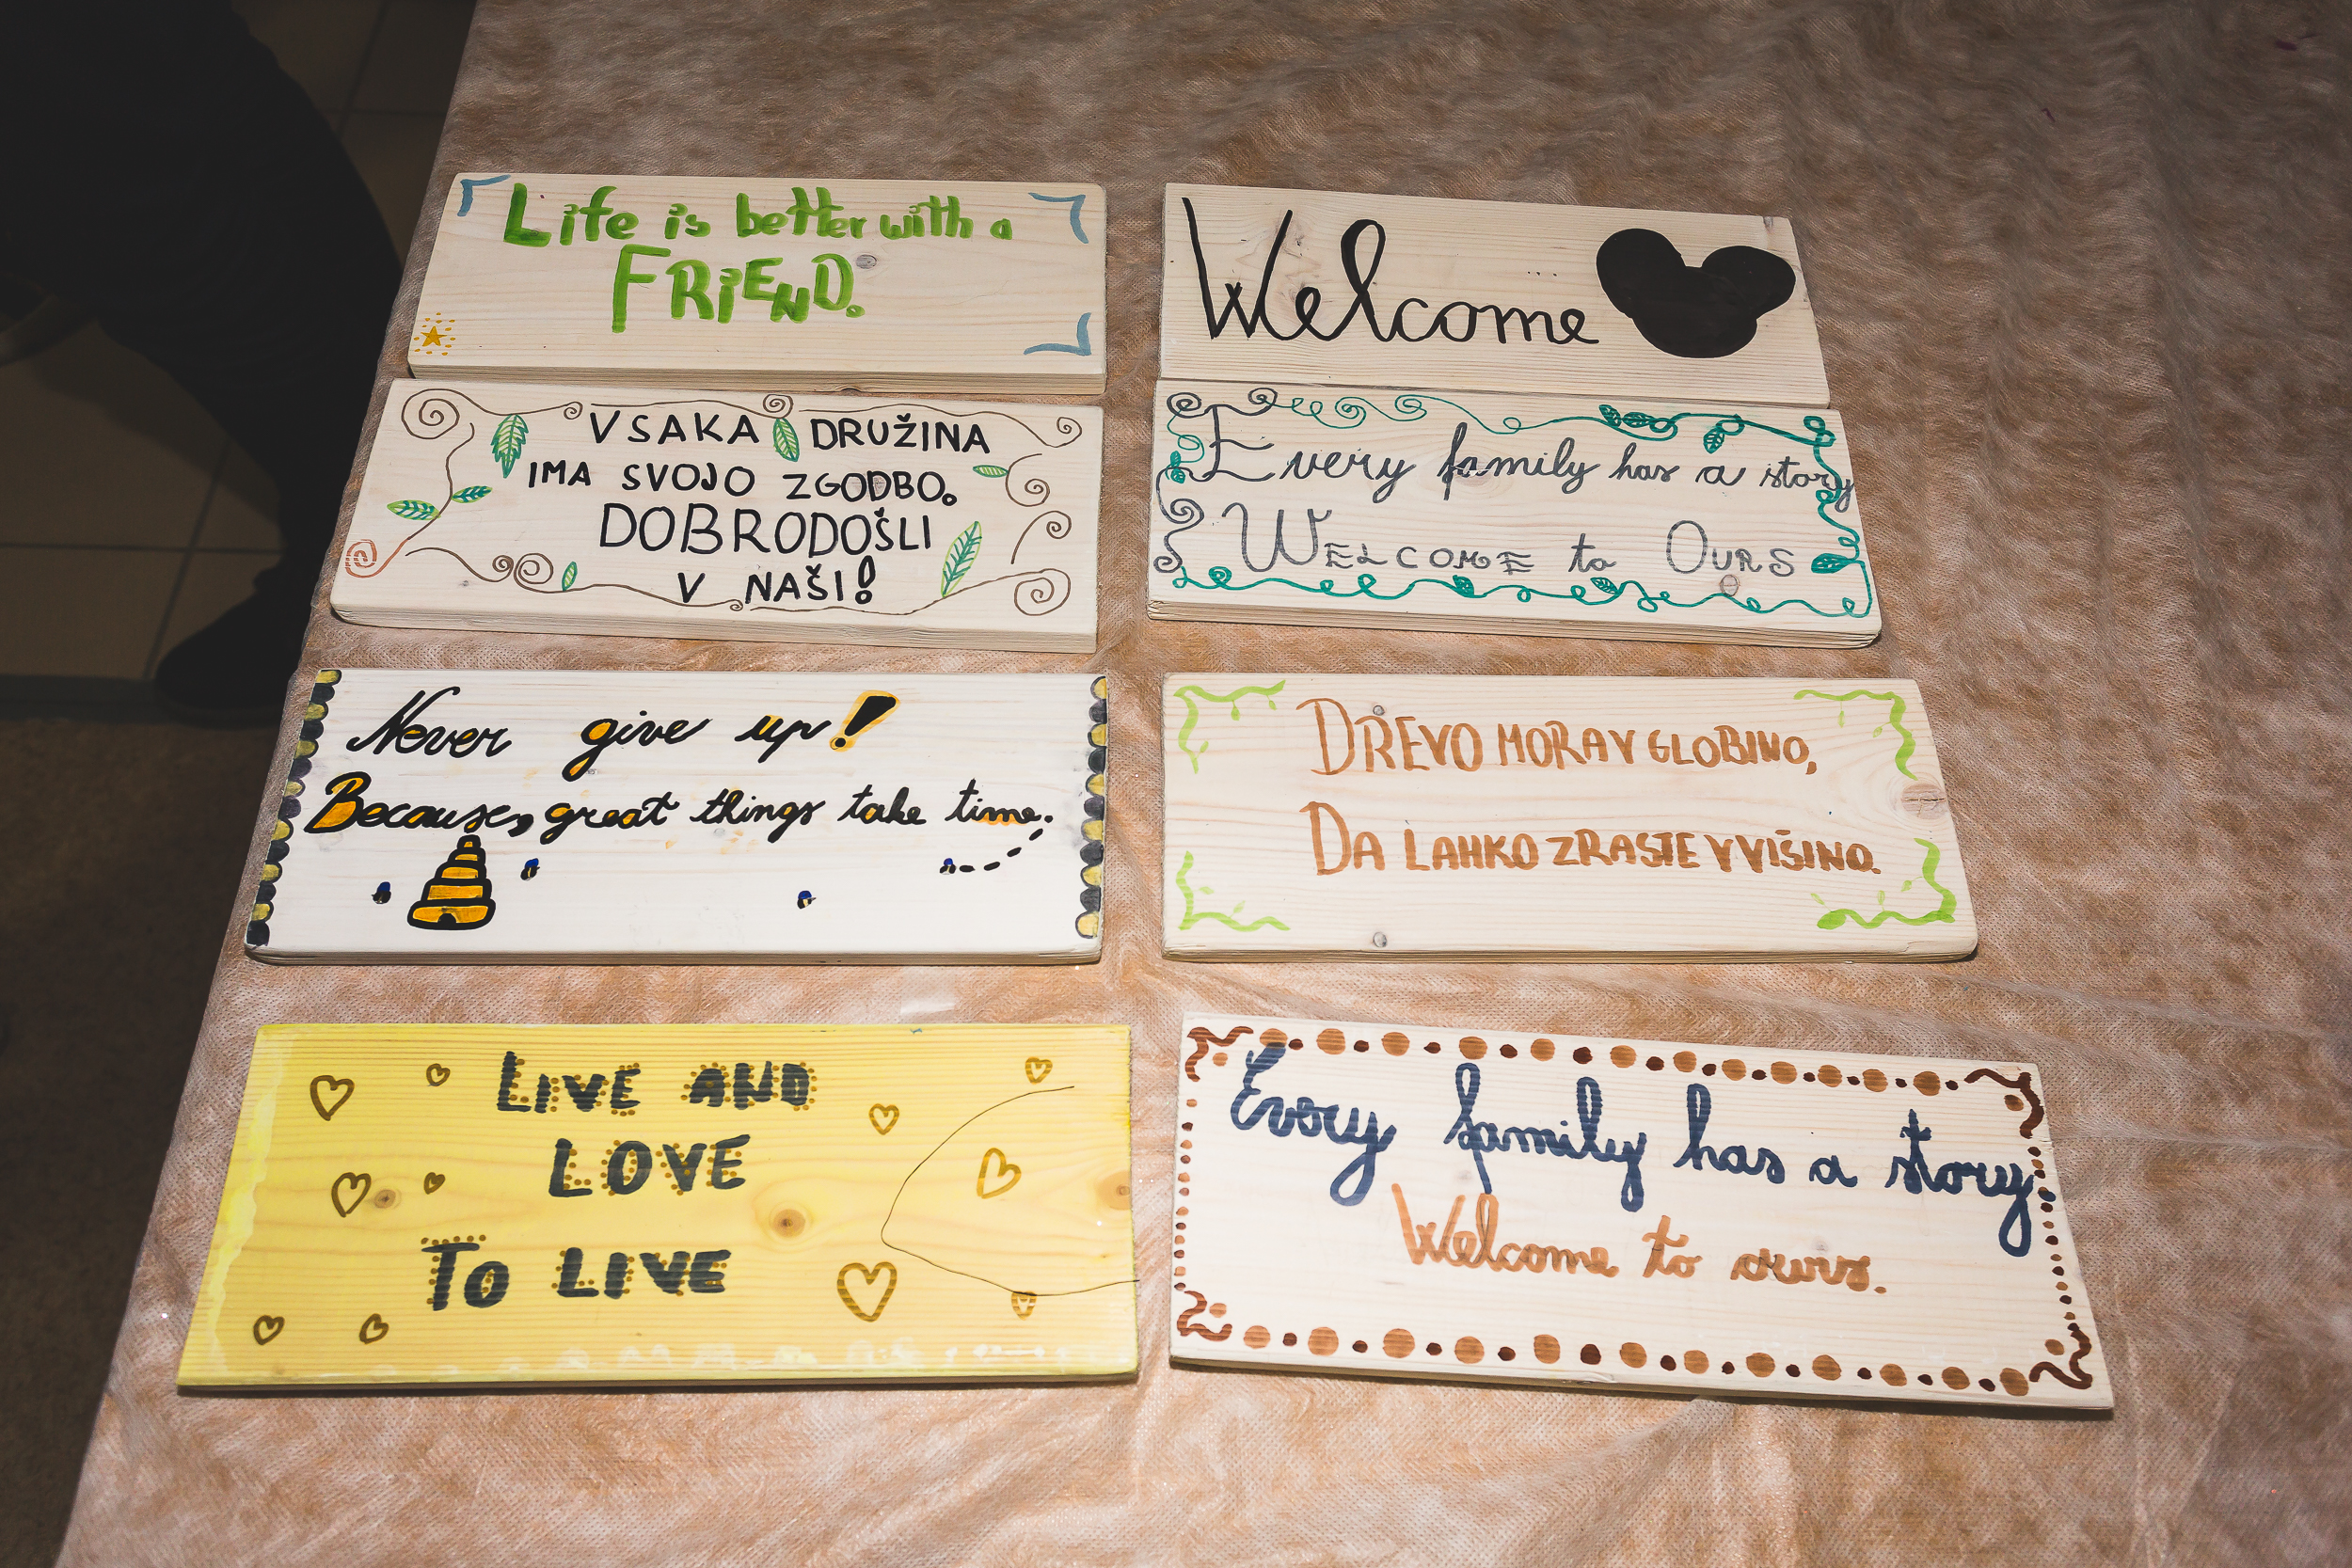 Life is better with a
FRiEND.
Welcome
VSAKA DRUŽINA
IMA SVOJO ZGODBO.
DOBRODOŠLI
V NAŠI!
Every family has a story
WELCOME to OURS
Never give up!
Because, great things take time.
DREVO MORA V GLOBINO,
DA LAHKO ZRASTE V VIŠINO.
LIVE AND
LOVE
TO LIVE
Every family has a story
Welcome to ours.